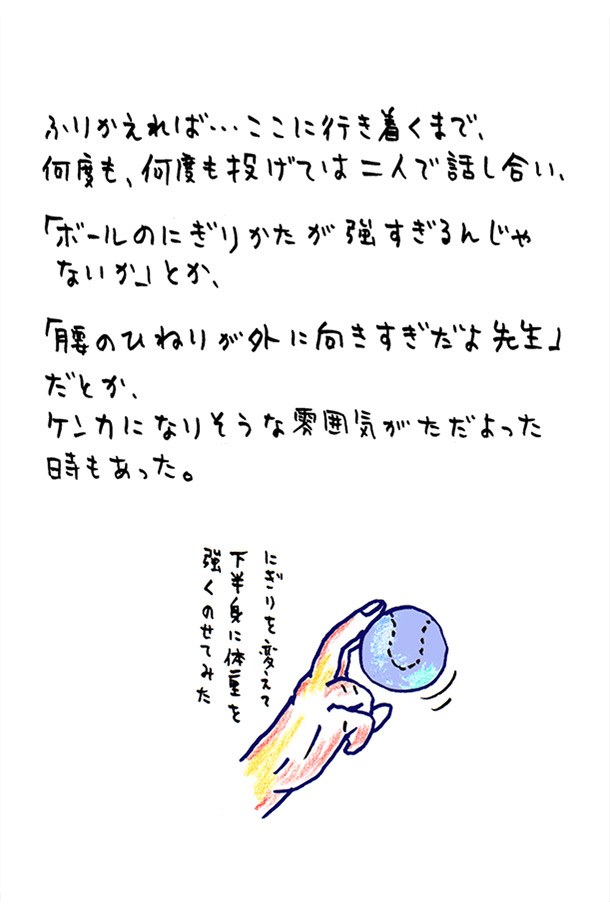 ふりかえれば…ここに行き着くまで、
何度も、何度も投げては二人で話し合い、
「ボールのにぎりかたが強すぎるんじゃ
ないか」とか、
「腰のひねりが外に向きすぎだよ先生」
だとか、
ケンカになりそうな雰囲気がただよった
時もあった。
にぎりを変えて
下半身に体重を
強くのせてみた